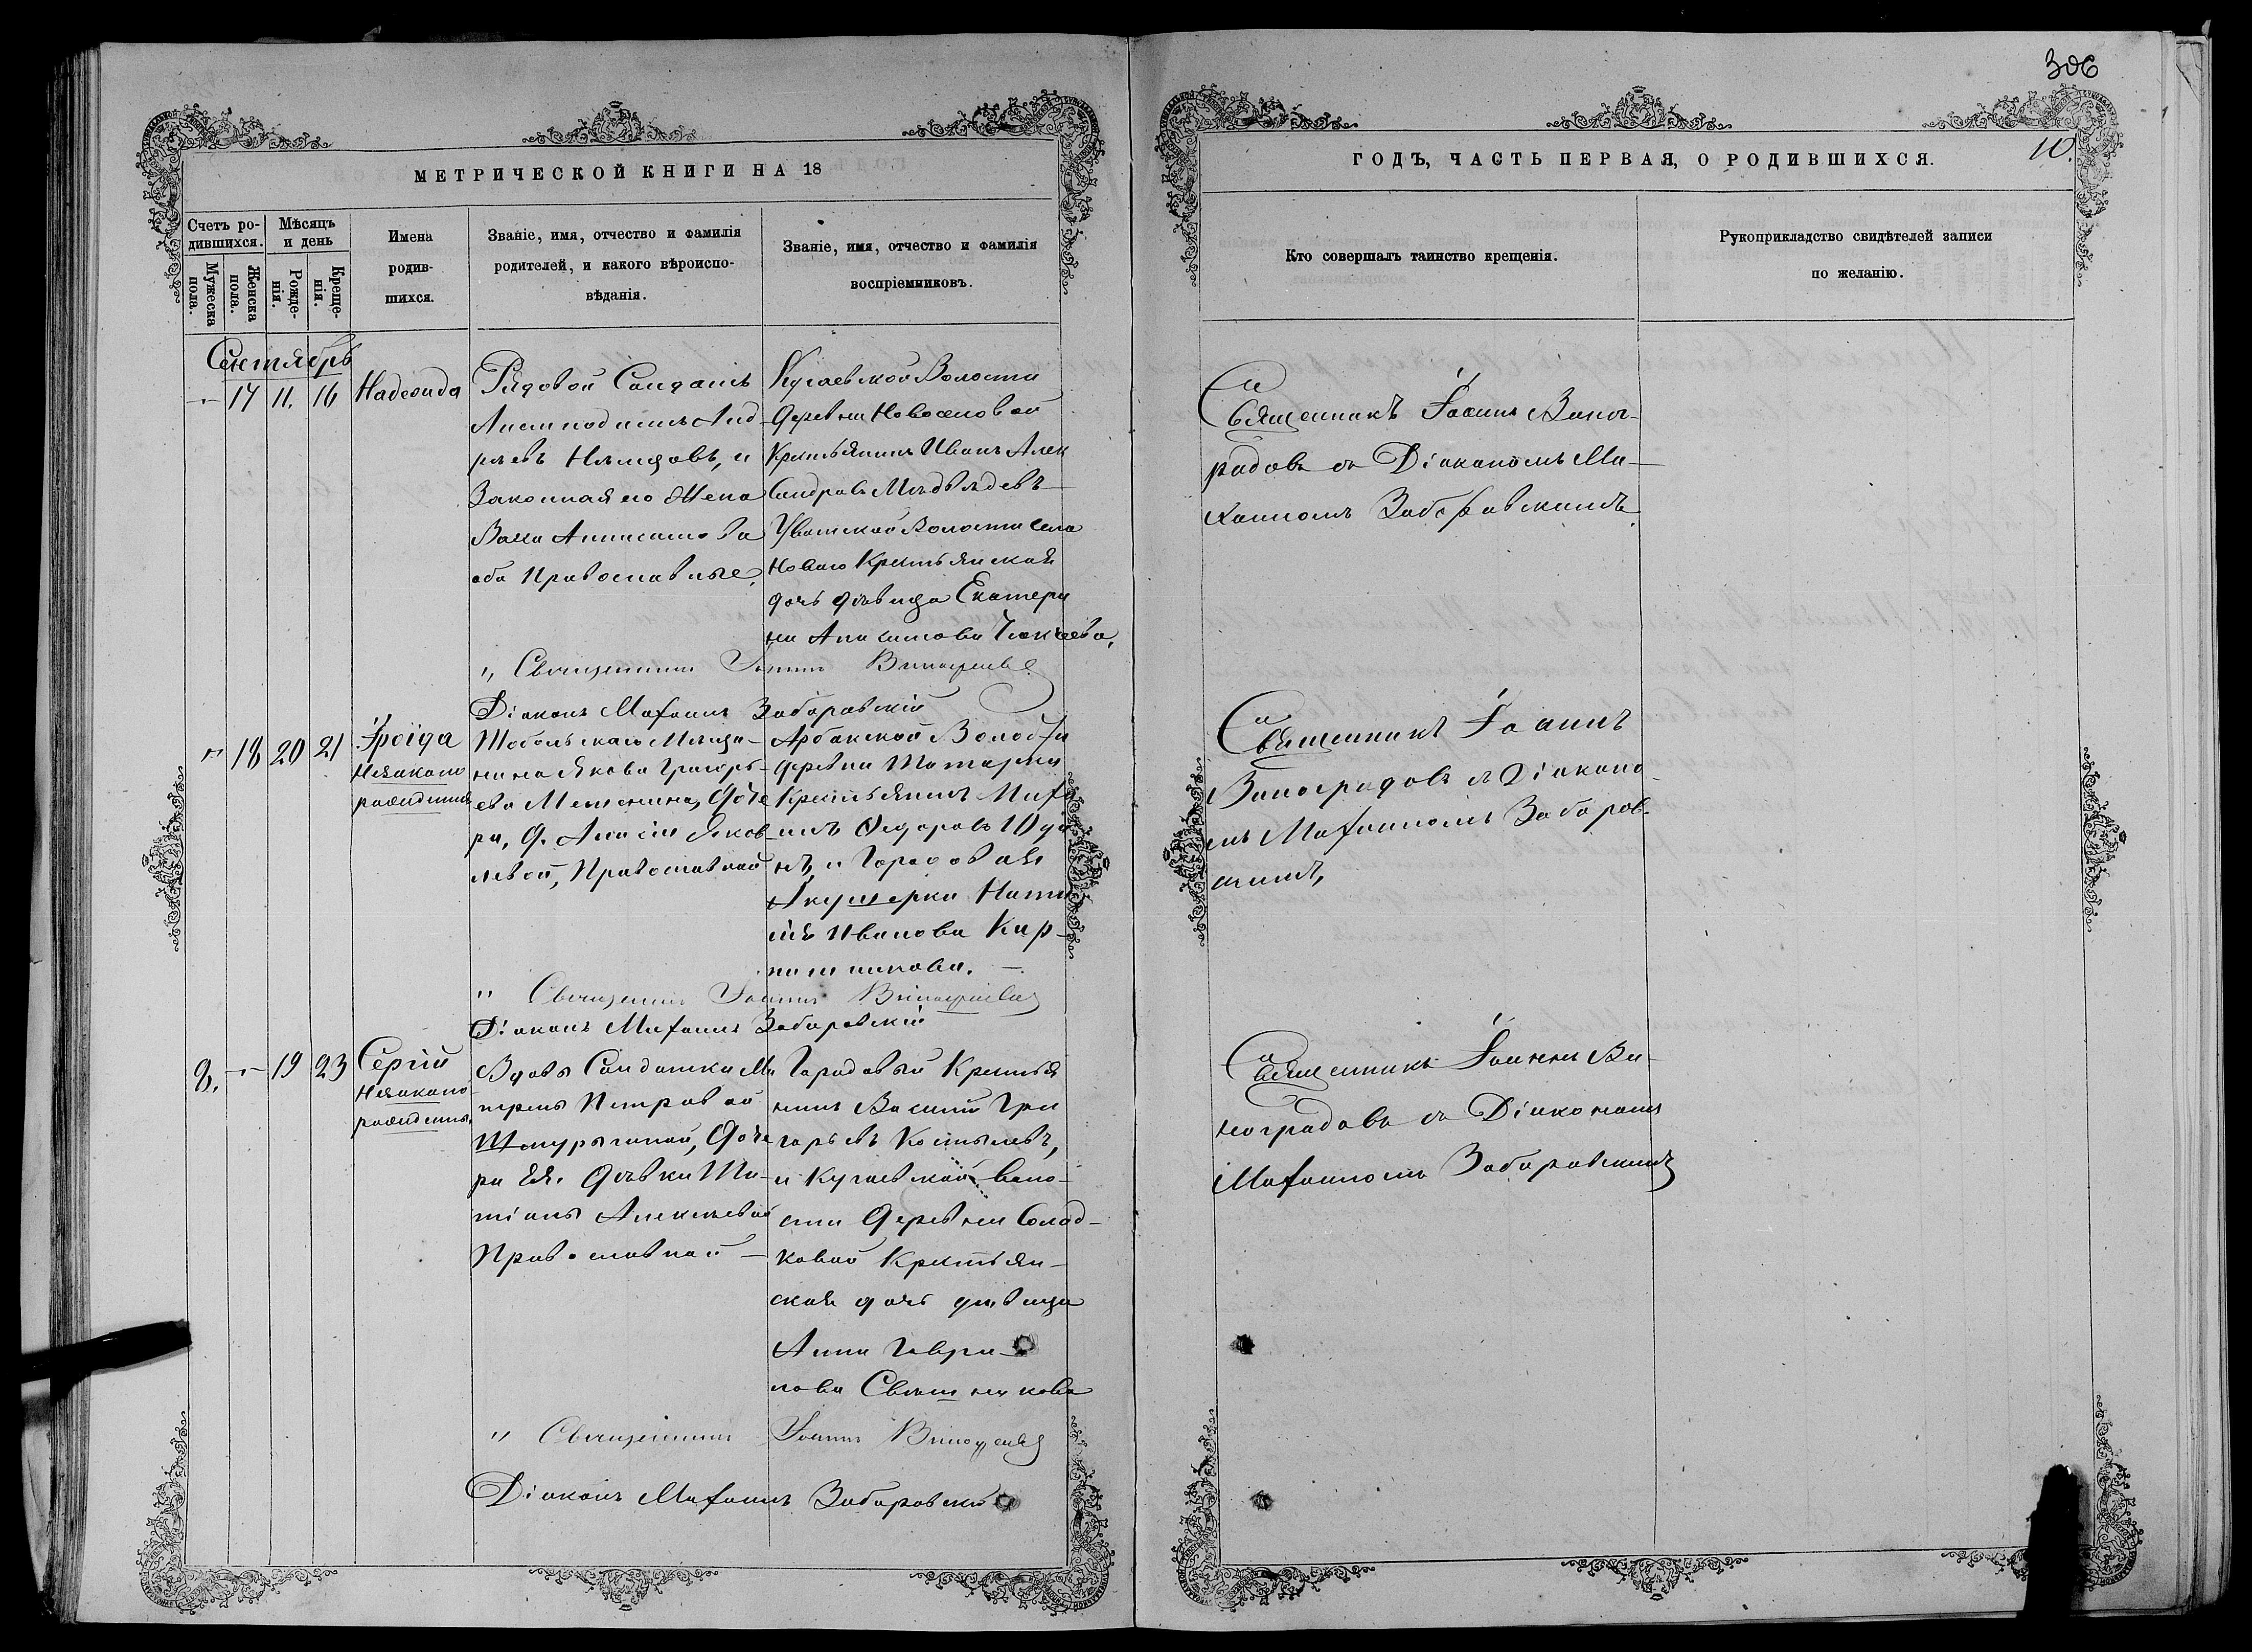 306
МЕТРИЧЕСКОЙ КНИГИ НА 18
ГОДЪ, ЧАСТЬ ПЕРВАЯ, О РОДИВШИХСЯ.
10.
Счетъ ро-
дившихся.
Мужеска
пола.
Женска
пола.
Мѣсяцъ
и день
Рожде-
нія.
Креще-
нія.
Имена
родив-
шихся.
Званіе, имя, отчество и фамилія
родителей, и какого вѣроиспо-
вѣданія.
Званіе, имя, отчество и фамилія
воспріемниковъ.
Кто совершалъ таинство крещенія.
Рукоприкладство свидѣтелей записи
по желанію.
Сентябрь
17 11. 16
Надежда
Рядовой Солдатъ
Андр
реевъ Нѣмцовъ, и
Законная его Жена
оба Православные,
Кугаевской Волости
деревни Новоселовой
Крестьянинъ Иванъ Алек
сандровъ Медвѣдевъ
Уватской Волости села
Новаго Крестьянская
дочь дѣвица Екатери
на
Священникъ Іоаннъ Виног-
радовъ съ Діакономъ Ми-
хаиломъ Заборовскимъ.
„ Священникъ Іоаннъ Виноградовъ
Діаконъ Михаилъ Заборовскій
18 20 21
Ираида
Незаконо
рожденная
Тобольскаго Мѣща-
нина Якова Григорь-
ева доче
ри, д. Яков
левой, Православной
Арбанской Волости
деревни Татарки
Крестьянинъ Миха
илъ Федоровъ Юди
нъ, и Городовая
Акушерка Ната
лія Иванова Кир-
пишникова.
Священникъ Іоаннъ
Виноградовъ съ Діаконо-
мъ Михаиломъ Заборов-
скимъ,
„ Священникъ Іоаннъ Виноградовъ
Діаконъ Михаилъ Заборовскій
9. 19 23
Сергій
Незаконо-
рожденный.
Вдовы Солдатки Ма
трены Петровой
доче
ри ея. Дѣвки Та-
тіаны Алексѣевой
Православной
Городовый Крестья
нинъ Василій Гри
горьевъ Костылевъ,
и Кугаевской воло-
сти Деревни Солод-
ковой Крестьян-
ская дочь дѣвица
Анна Гаври-
лова Свѣшникова
Священникъ Іоаннъ Ви-
ноградовъ съ Діакономъ
Михаиломъ Заборовскимъ
„ Священникъ Іоаннъ Виноградовъ
Діаконъ Михаилъ Заборовскій